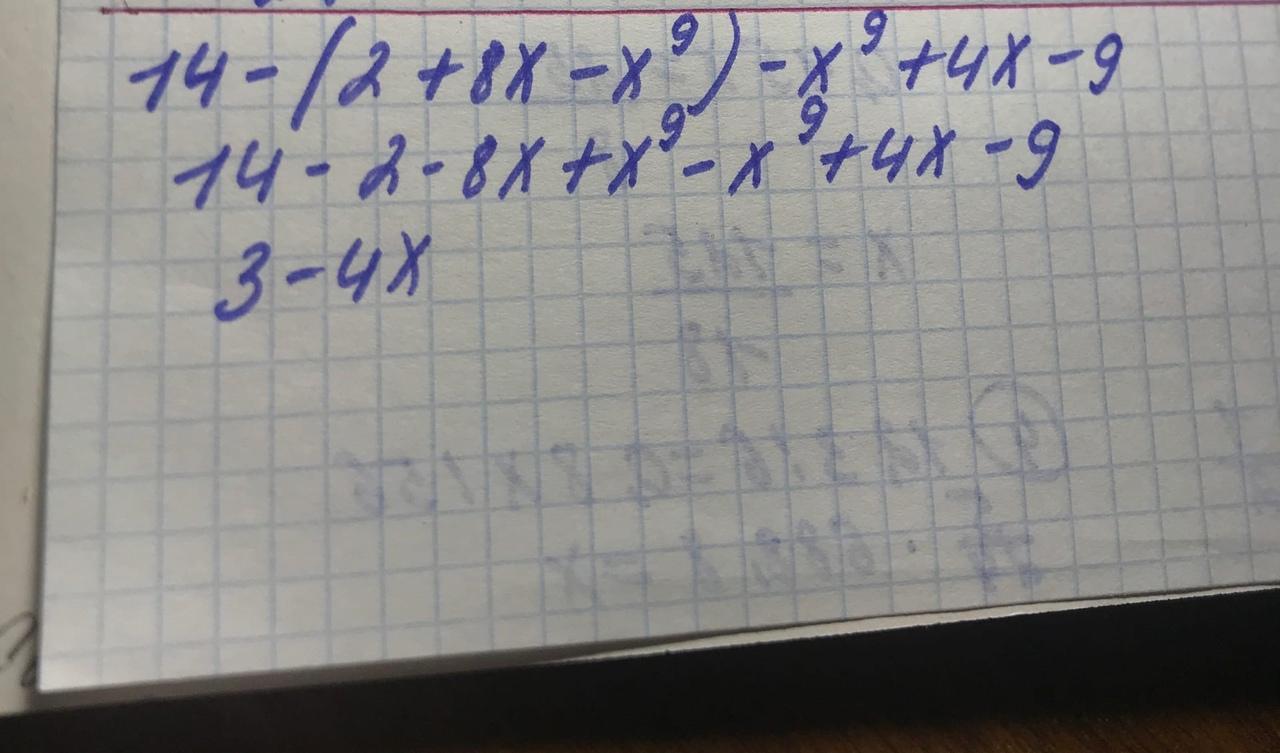 14 - (2 + 8x - x⁹) - x⁹ + 4x - 9
14 - 2 - 8x + x⁹ - x⁹ + 4x - 9
3 - 4x